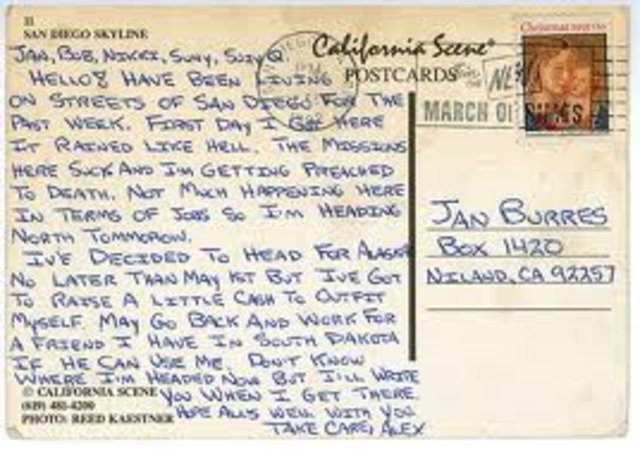 11
SAN DIEGO SKYLINE
JAN, BOB, NIKKI, SUNY, SUZY Q.
HELLO! HAVE BEEN LIVING
ON STREETS OF SAN DIEGO FOR THE
PAST WEEK. FIRST DAY I GOT HERE
IT RAINED LIKE HELL. THE MISSIONS
HERE SUCK AND I'M GETTING PREACHED
TO DEATH. NOT MUCH HAPPENING HERE
IN TERMS OF JOBS SO I'M HEADING
NORTH TOMMOROW.
I'VE DECIDED TO HEAD FOR ALASKA
NO LATER THAN MAY 1ST BUT I'VE GOT
TO RAISE A LITTLE CASH TO OUTFIT
MYSELF. MAY GO BACK AND WORK FOR
A FRIEND I HAVE IN SOUTH DAKOTA
IF HE CAN USE ME. DON'T KNOW
WHERE I'M HEADED NOW BUT I'LL WRITE
YOU WHEN I GET THERE.
HOPE ALLS WELL WITH YOU
TAKE CARE, ALEX
© CALIFORNIA SCENE
(619) 481-4200
PHOTO: REED KAESTNER
California Scene®
POSTCARDS
Christmas
MARCH 01
JAN BURRES
BOX 1420
NILAND, CA 92257